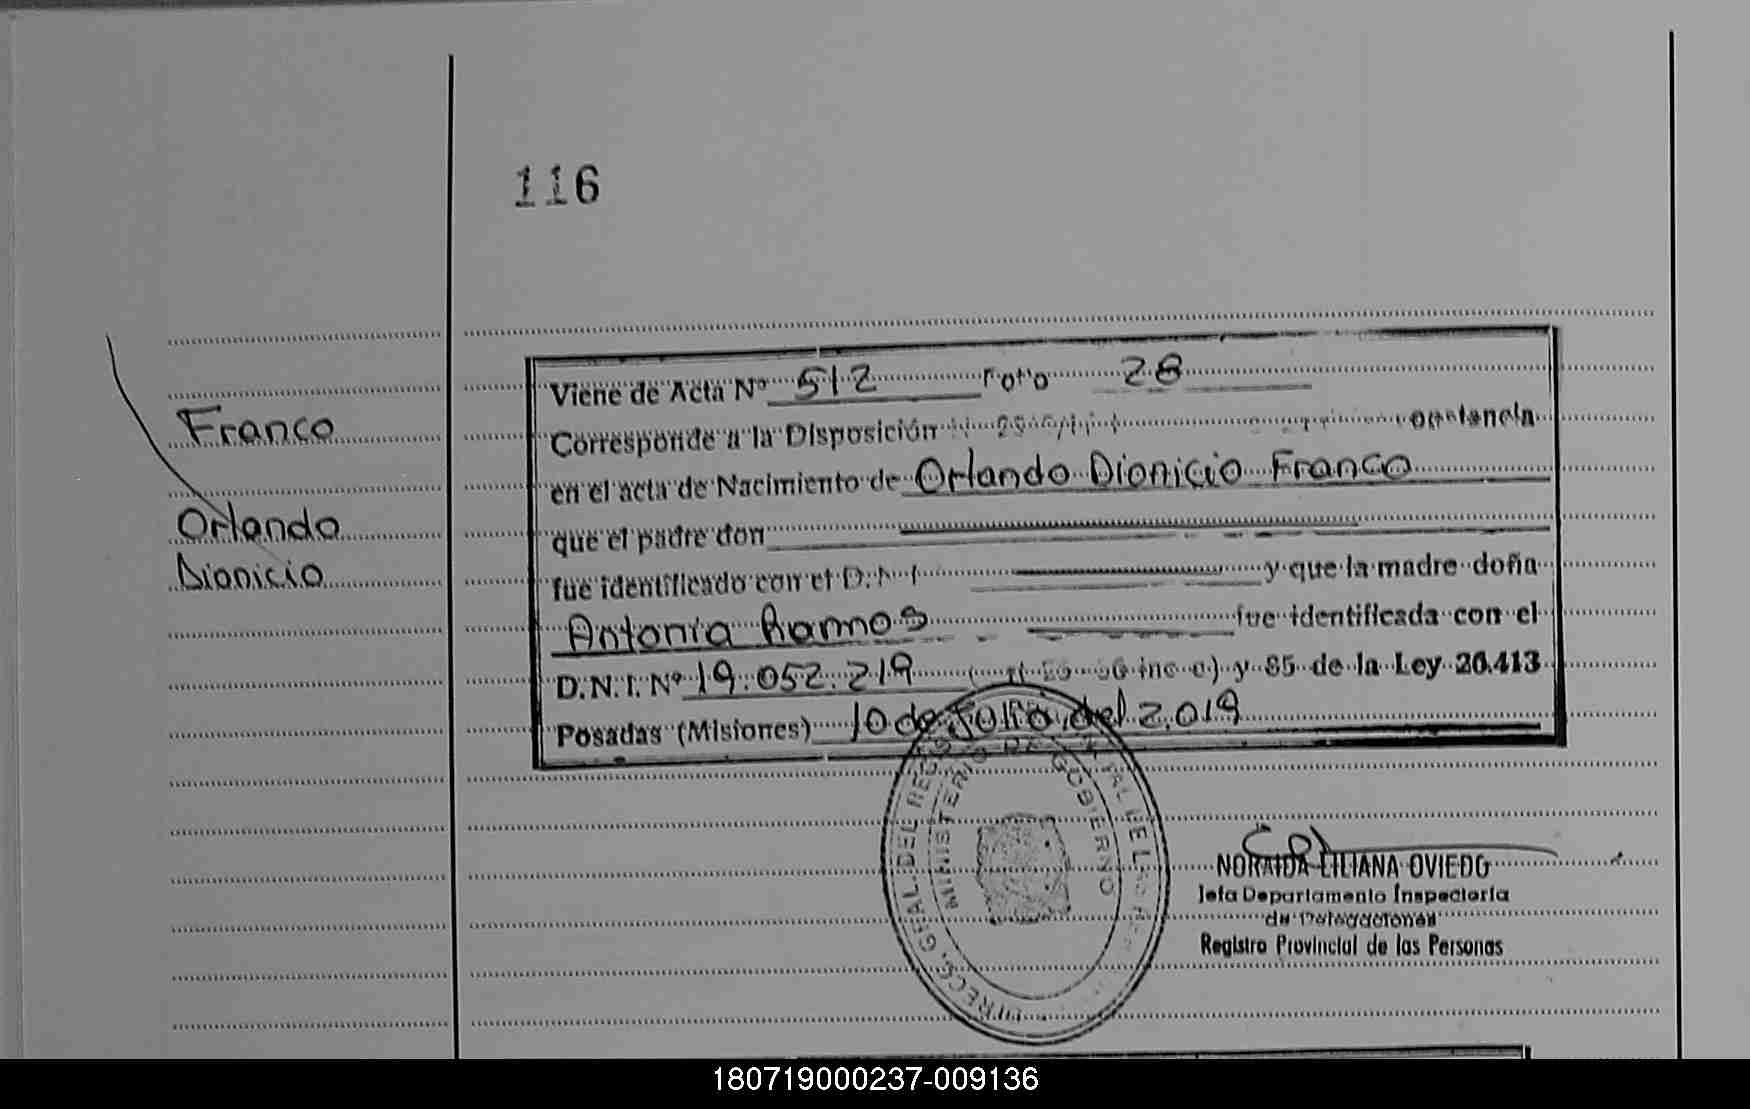 116
Franco
Orlando
Dionicio
Viene de Acta Nº 512 Folio 28
Corresponde a la Disposición constancia
en el acta de Nacimiento de Orlando Dionicio Franco
que el padre don
fue identificado con el D.N.I y que la madre doña
Antonia Ramos fue identificada con el
D.N.I. Nº 19.052.219 inc c) y 85 de la Ley 26.413
Posadas (Misiones) 10 de Julio del 2.019
MINISTERIO DE GOBIERNO
NORAIDA LILIANA OVIEDO
Jefa Departamento Inspectoría
de Delegaciones
Registro Provincial de las Personas
180719000237-009136